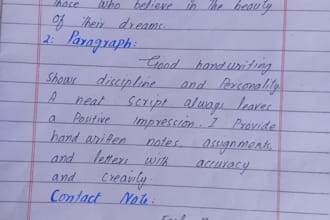 those who believe in the beauty
Of their dreams.
2: Paragraph:
Good handwriting
Shows discipline and Personality
A neat script always leaves
a Positive impression. I Provide
handwriten notes, assignments,
and letters with accuracy
and creavily.
Contact Note: